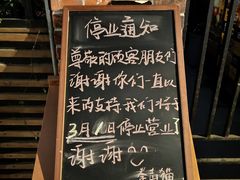 停业通知
尊敬的顾客朋友们
谢谢你们一直以
来的支持我们将于
3月1日停止营业了
谢谢